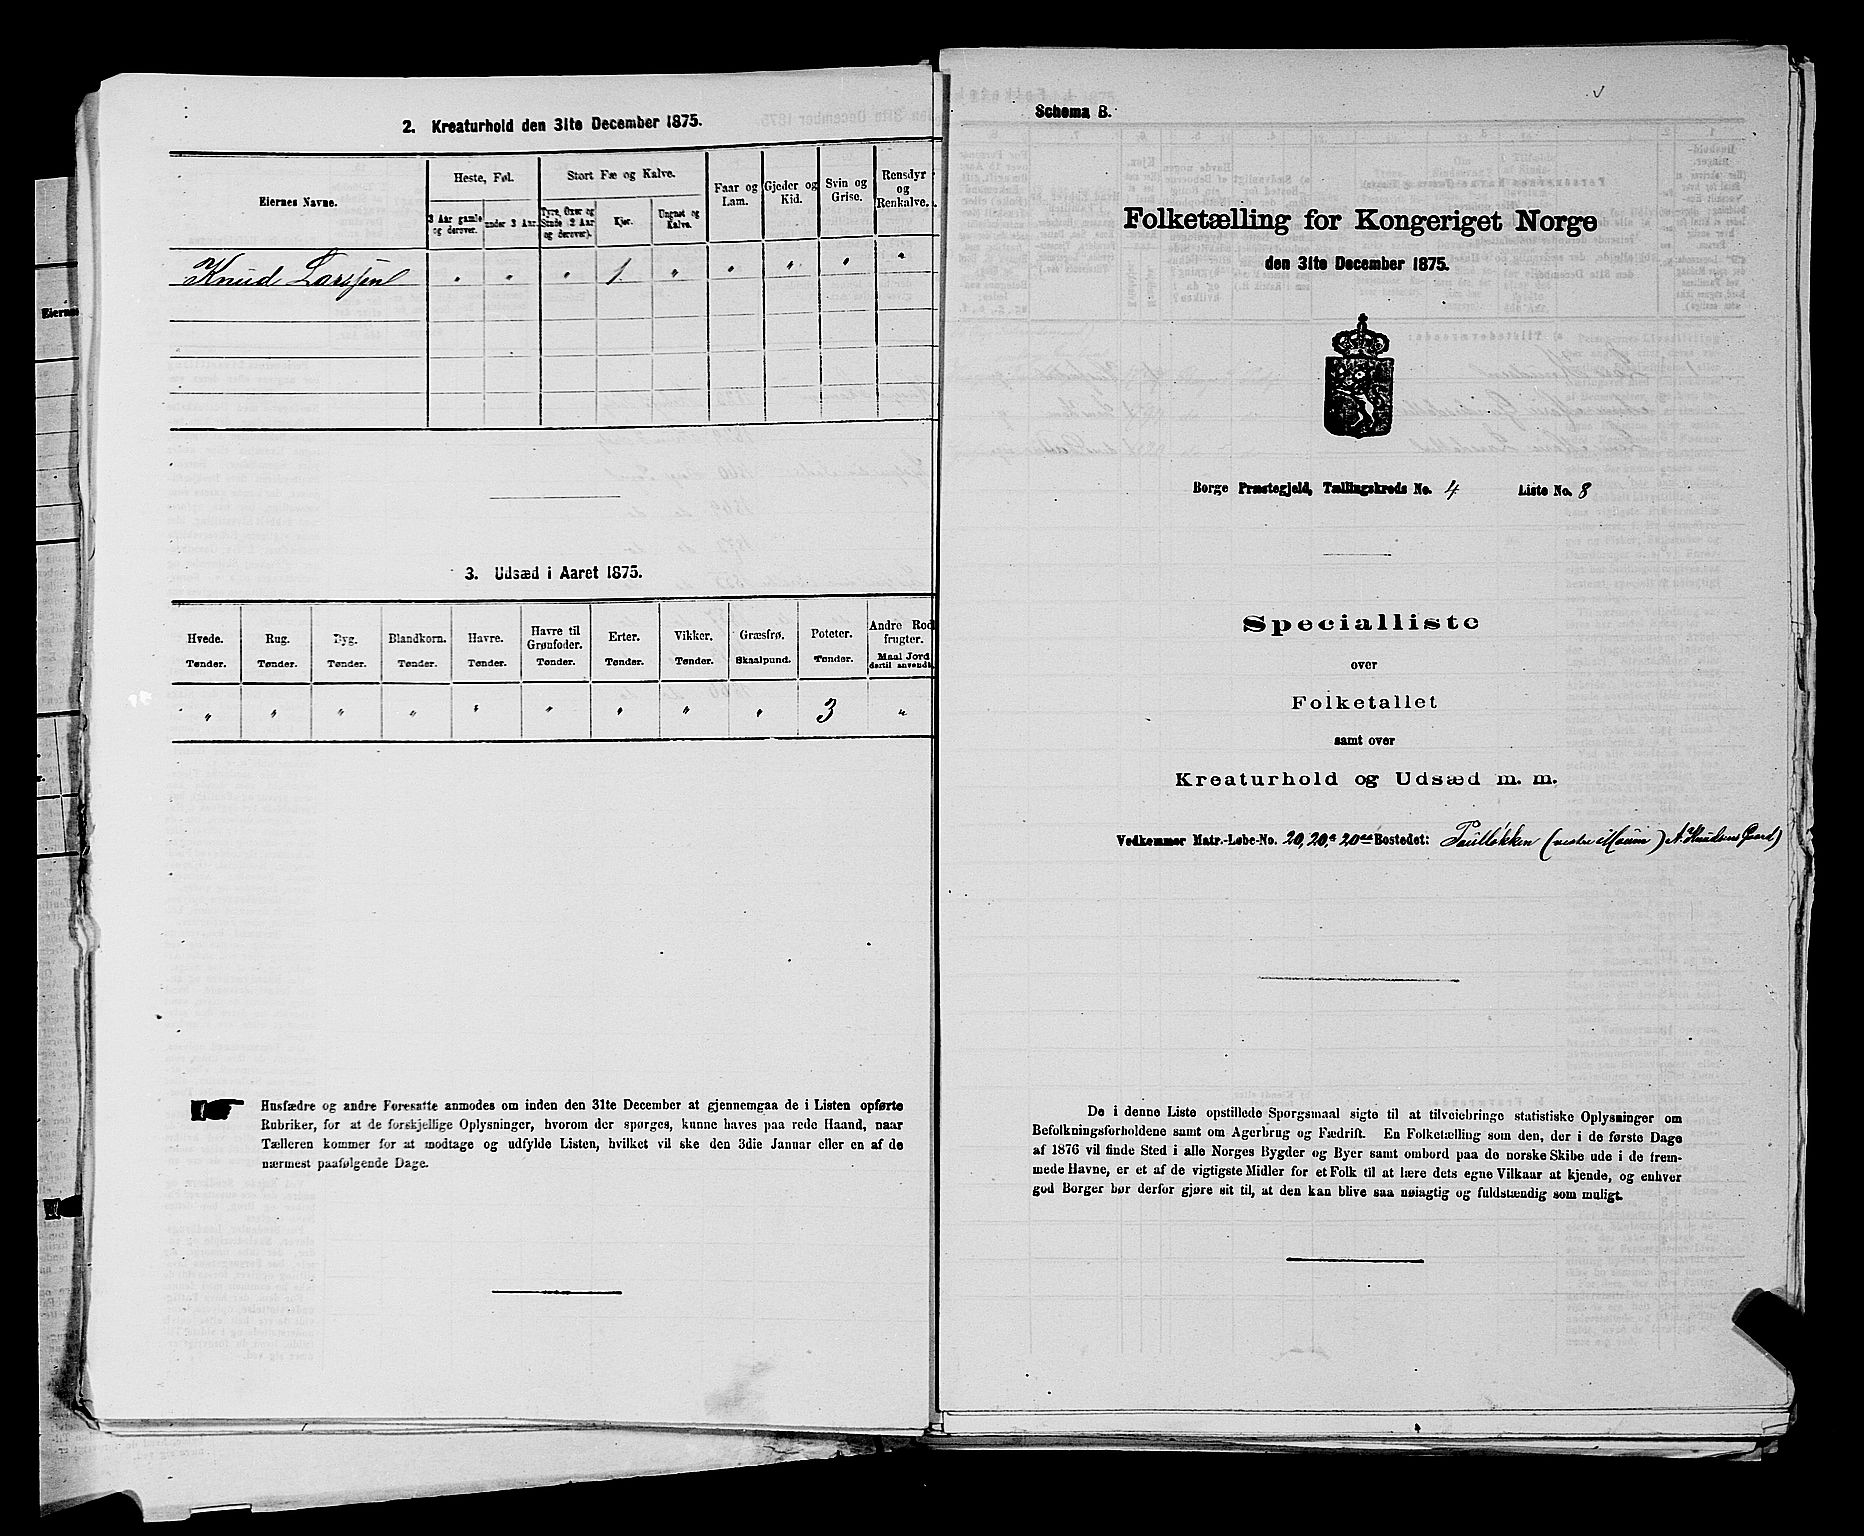 2. Kreaturhold den 31te December 1875.
Eiernes Navne.
Heste, Føl.
Stort Fæ og Kalve.
Faar og Lam.
Gjeder og Kid.
Svin og Grise.
Rensdyr og Renkalve.
3 Aar gamle og derover.
under 3 Aar.
Tyre, Oxer og Stude (2 Aar og derover).
Kjør.
Ungnøt og Kalve.
Knud Larssen " " " 1. " " " " "
3. Udsæd i Aaret 1875.
Hvede. Rug. Byg. Blandkorn. Havre. Havre til Grønfoder. Erter. Vikker. Græsfrø. Poteter. Andre Rodfrugter.
Tønder. Tønder. Tønder. Tønder. Tønder. Tønder. Tønder. Tønder. Skaalpund. Tønder. Maal Jord dertil anvendt.
" " " " " " " " " 3 "
Husfædre og andre Foresatte anmodes om inden den 31te December at gjennemgaa de i Listen opførte
Rubriker, for at de forskjellige Oplysninger, hvorom der spørges, kunne haves paa rede Haand, naar
Tælleren kommer for at modtage og udfylde Listen, hvilket vil ske den 3die Januar eller en af de
nærmest paafølgende Dage.
Schema B.
Folketælling for Kongeriget Norge
den 31te December 1875.
Borge Præstegjeld, Tællingskreds No. 4 Liste No. 8
Specialliste
over
Folketallet
samt over
Kreaturhold og Udsæd m. m.
Vedkommer Matr.-Løbe-No. 20, 20,a 20aa Bostedet: (vestre Moum) A. Knudsens Gaard)
De i denne Liste opstillede Spørgsmaal sigte til at tilveiebringe statistiske Oplysninger om
Befolkningsforholdene samt om Agerbrug og Fædrift. En Folketælling som den, der i de første Dage
af 1876 vil finde Sted i alle Norges Bygder og Byer samt ombord paa de norske Skibe ude i de frem-
mede Havne, er et af de vigtigste Midler for et Folk til at lære dets egne Vilkaar at kjende, og enhver
god Borger bør derfor gjøre sit til, at den kan blive saa nøiagtig og fuldstændig som muligt.